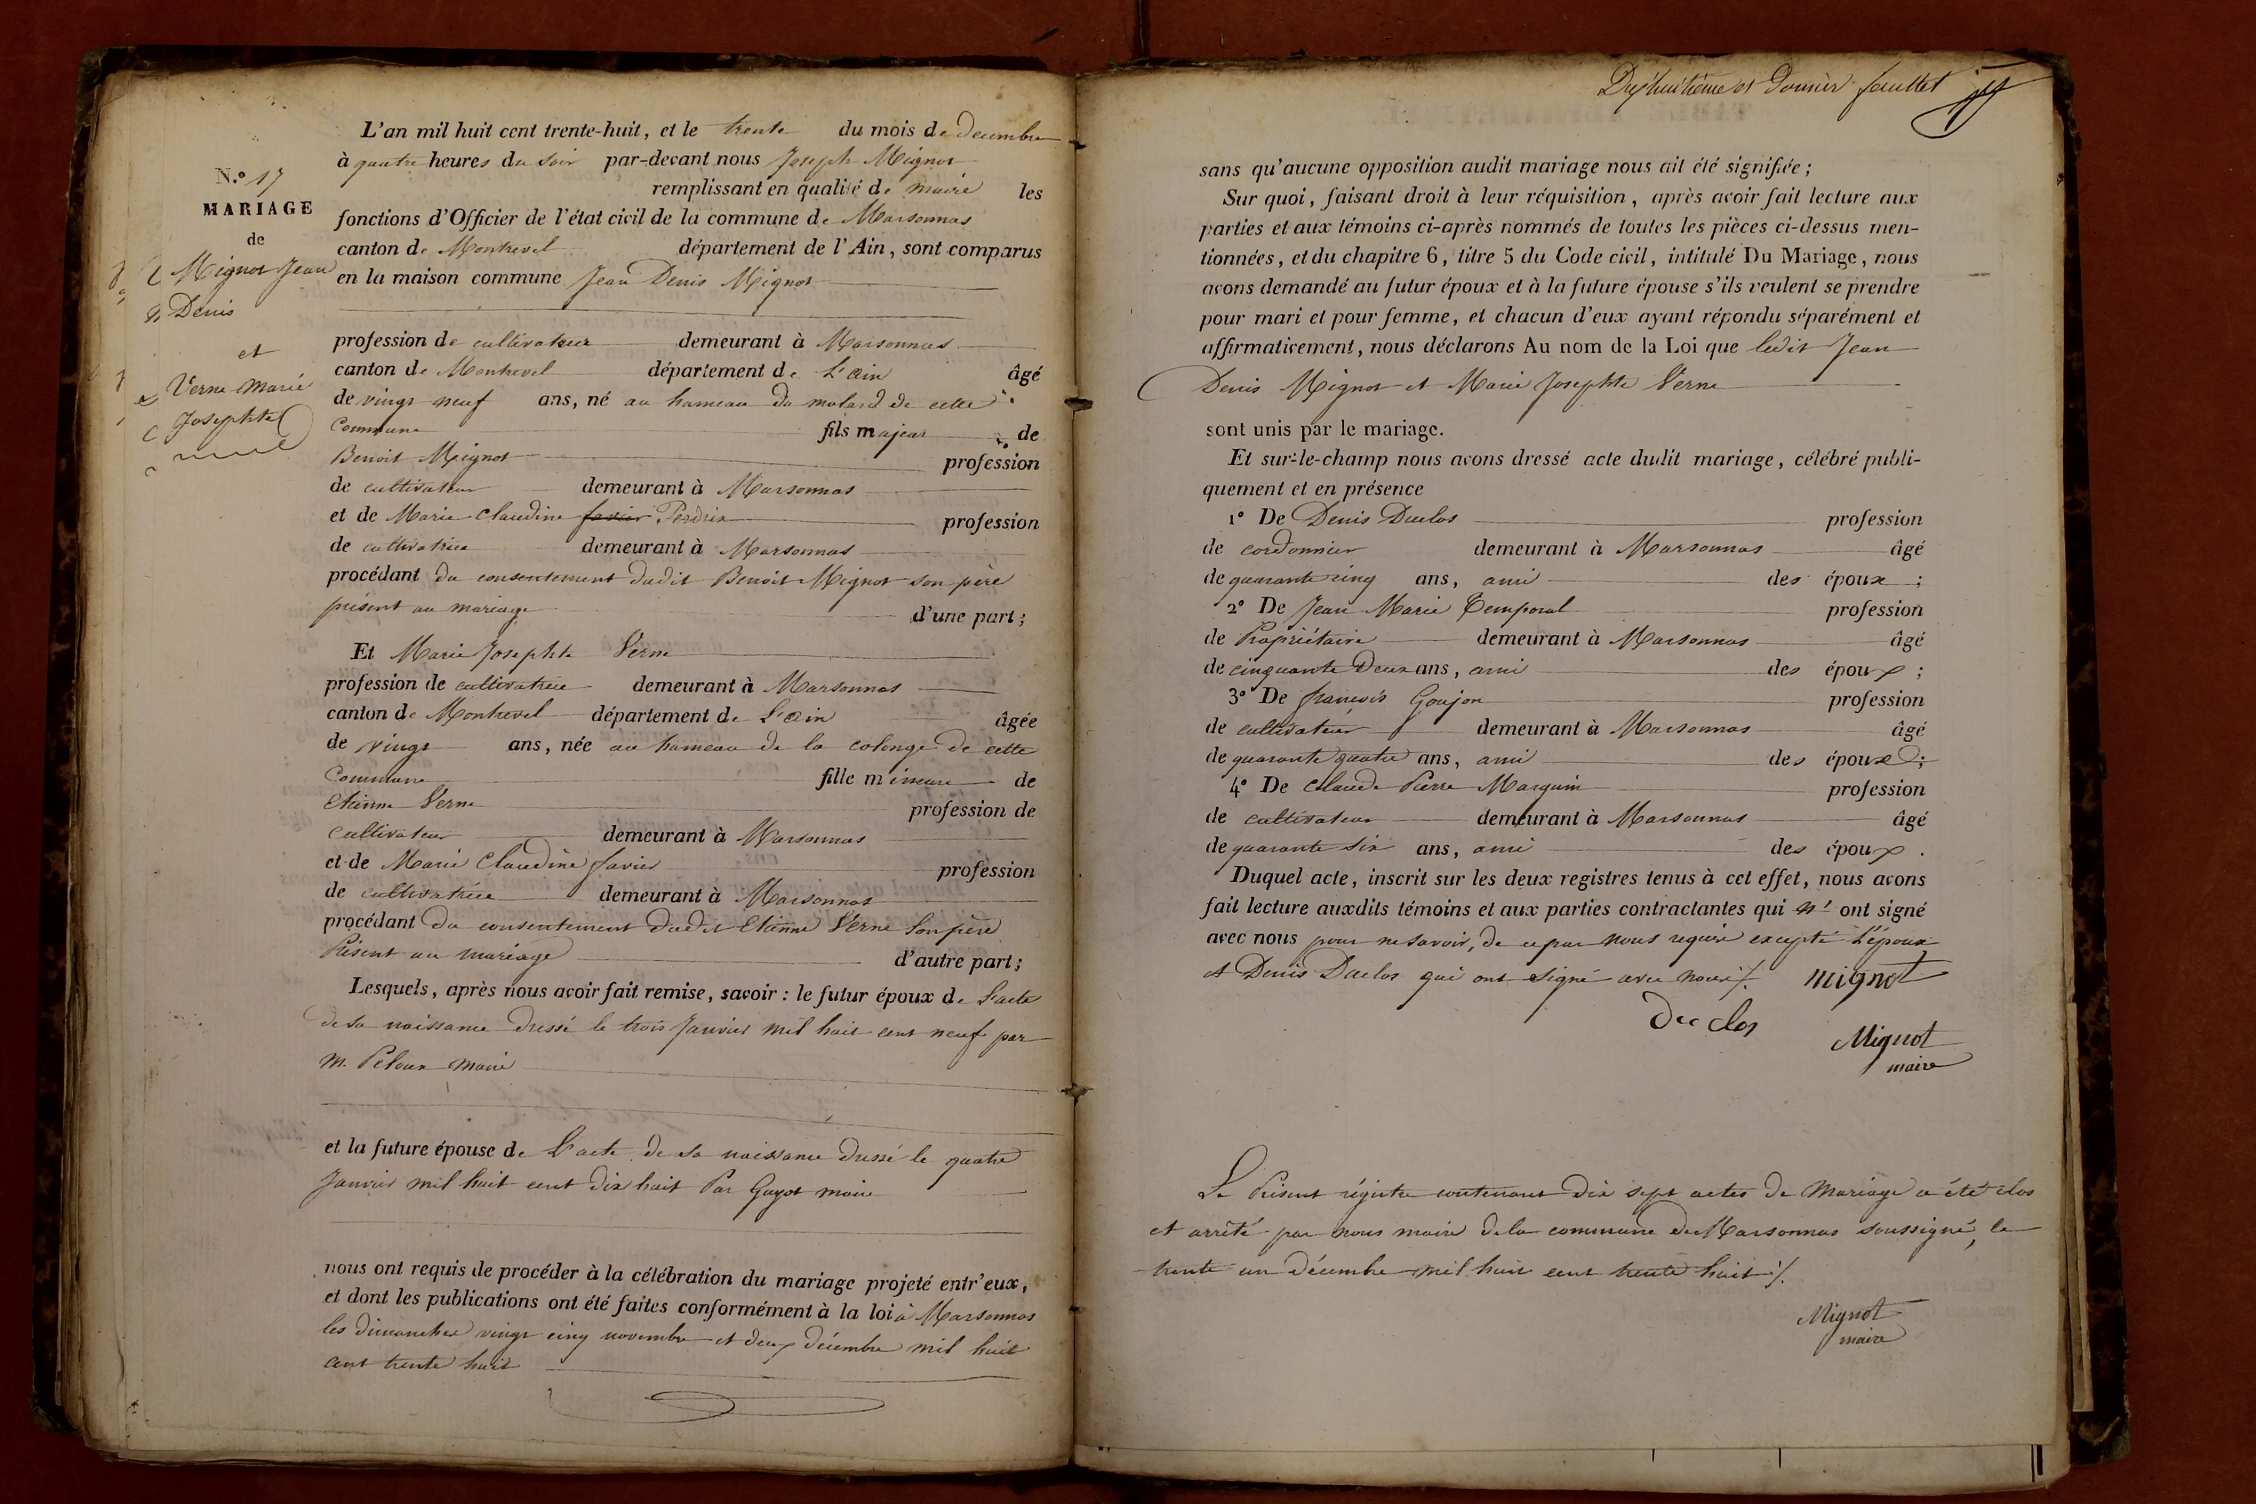 N.° 17
MARIAGE
de
Mignot Jean
Denis
et
Verne Marie
Josephte
L'an mil huit cent trente-huit, et le trente du mois de Decembre
à quatre heures du soir par-devant nous Joseph Mignot
remplissant en qualité de maire les
fonctions d'Officier de l'état civil de la commune de Marsonnas
canton de Montrevel département de l'Ain, sont comparus
en la maison commune Jean Denis Mignot
profession de cultivateur demeurant à Marsonnas
canton de Montrevel département de L'ain âgé
de vingt neuf ans, né au hameau du molard de cette
Commune fils majeur de
Benoit Mignot profession
de cultivateur demeurant à Marsonnas
et de Marie Claudine favier Perdrix profession
de cultivatrice demeurant à Marsonnas
procédant du consentement dudit Benoit Mignot son père
présent au mariage d'une part;
Et Marie Josephte Verne
profession de cultivatrice demeurant à Marsonnas
canton de Montrevel département de L'ain âgée
de vingt ans, née au hameau de la colonge de cette
Commune fille mineure de
Etienne Verne profession de
cultivateur demeurant à Marsonnas
et de Marie Claudine favier profession
de cultivatrice demeurant à Marsonnas
procédant du consentement dudit Etienne Verne Son père
Présent au mariage d'autre part;
Lesquels, après nous avoir fait remise, savoir: le futur époux de L'acte
de sa naissance dressé le trois Janvier mil huit cent neuf par
M. Peloux maire
et la future épouse de L'acte de sa naissance dressé le quatre
Janvier mil huit cent dix huit Par Guyot maire
nous ont requis de procéder à la célébration du mariage projeté entr'eux,
et dont les publications ont été faites conformément à la loi à Marsonnas
les dimanches vingt cinq novembre et deux décembre mil huit
cent trente huit
Dixhuitième et Dernier feuillet
sans qu'aucune opposition audit mariage nous ait été signifiée;
Sur quoi, faisant droit à leur réquisition, après avoir fait lecture aux
parties et aux témoins ci-après nommés de toutes les pièces ci-dessus men-
tionnées, et du chapitre 6, titre 5 du Code civil, intitulé Du Mariage, nous
avons demandé au futur époux et à la future épouse s'ils veulent se prendre
pour mari et pour femme, et chacun d'eux ayant répondu séparément et
affirmativement, nous déclarons Au nom de la Loi que ledit Jean
Denis Mignot et Marie Josephte Verne
sont unis par le mariage.
Et sur-le-champ nous avons dressé acte dudit mariage, célébré publi-
quement et en présence
1° De Denis Duclos profession
de cordonnier demeurant à Marsonnas âgé
de quarante cinq ans, ami des époux;
2° De Jean Marie Temporal profession
de Propriétaire demeurant à Marsonnas âgé
de cinquante Deux ans, ami des époux;
3° De françois Goujon profession
de cultivateur demeurant à Marsonnas âgé
de quarante quatre ans, ami des époux;
4° De Claude Pierre Marguin profession
de cultivateur demeurant à Marsonnas âgé
de quarante Six ans, ami des époux.
Duquel acte, inscrit sur les deux registres tenus à cet effet, nous avons
fait lecture auxdits témoins et aux parties contractantes qui n' ont signé
avec nous pour ne savoir, de ce par nous requis excepté L'époux
et Denis Duclos qui ont signé avec nous %. mignot
Duclos
Mignot
maire
Le Présent régistre contenant Dix sept actes de Mariage a été clos
et arrêté par nous maire de la commune de Marsonnas soussigné, le
trente un décembre mil huit cent trente huit %.
Mignot
maire